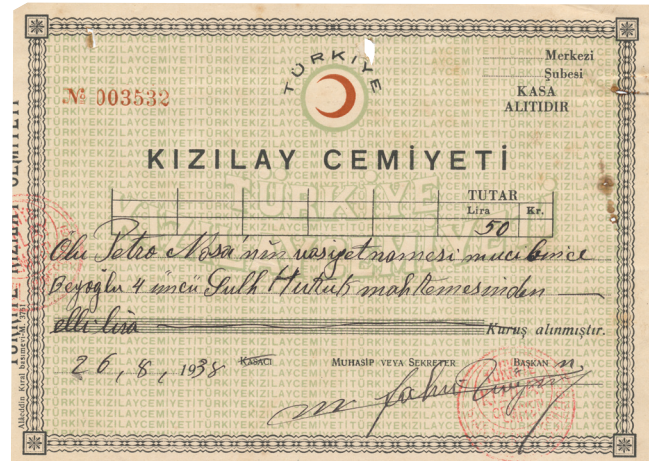 TÜRKİYE
Merkezi
Şubesi
KASA
ALITIDIR
№ 003532
KIZILAY CEMİYETİ
TUTAR
Lira Kr.
50
Ölü Petro Nasa'nın vasiyetnamesi mucibince
Beyoğlu 4 üncü Sulh Hukuk mahkemesinden
elli lira Kuruş alınmıştır.
26, 8, 1938 KASACI MUHASİP VEYA SEKRETER BAŞKAN
Alâeddin Kıral basımevi-M. 3781